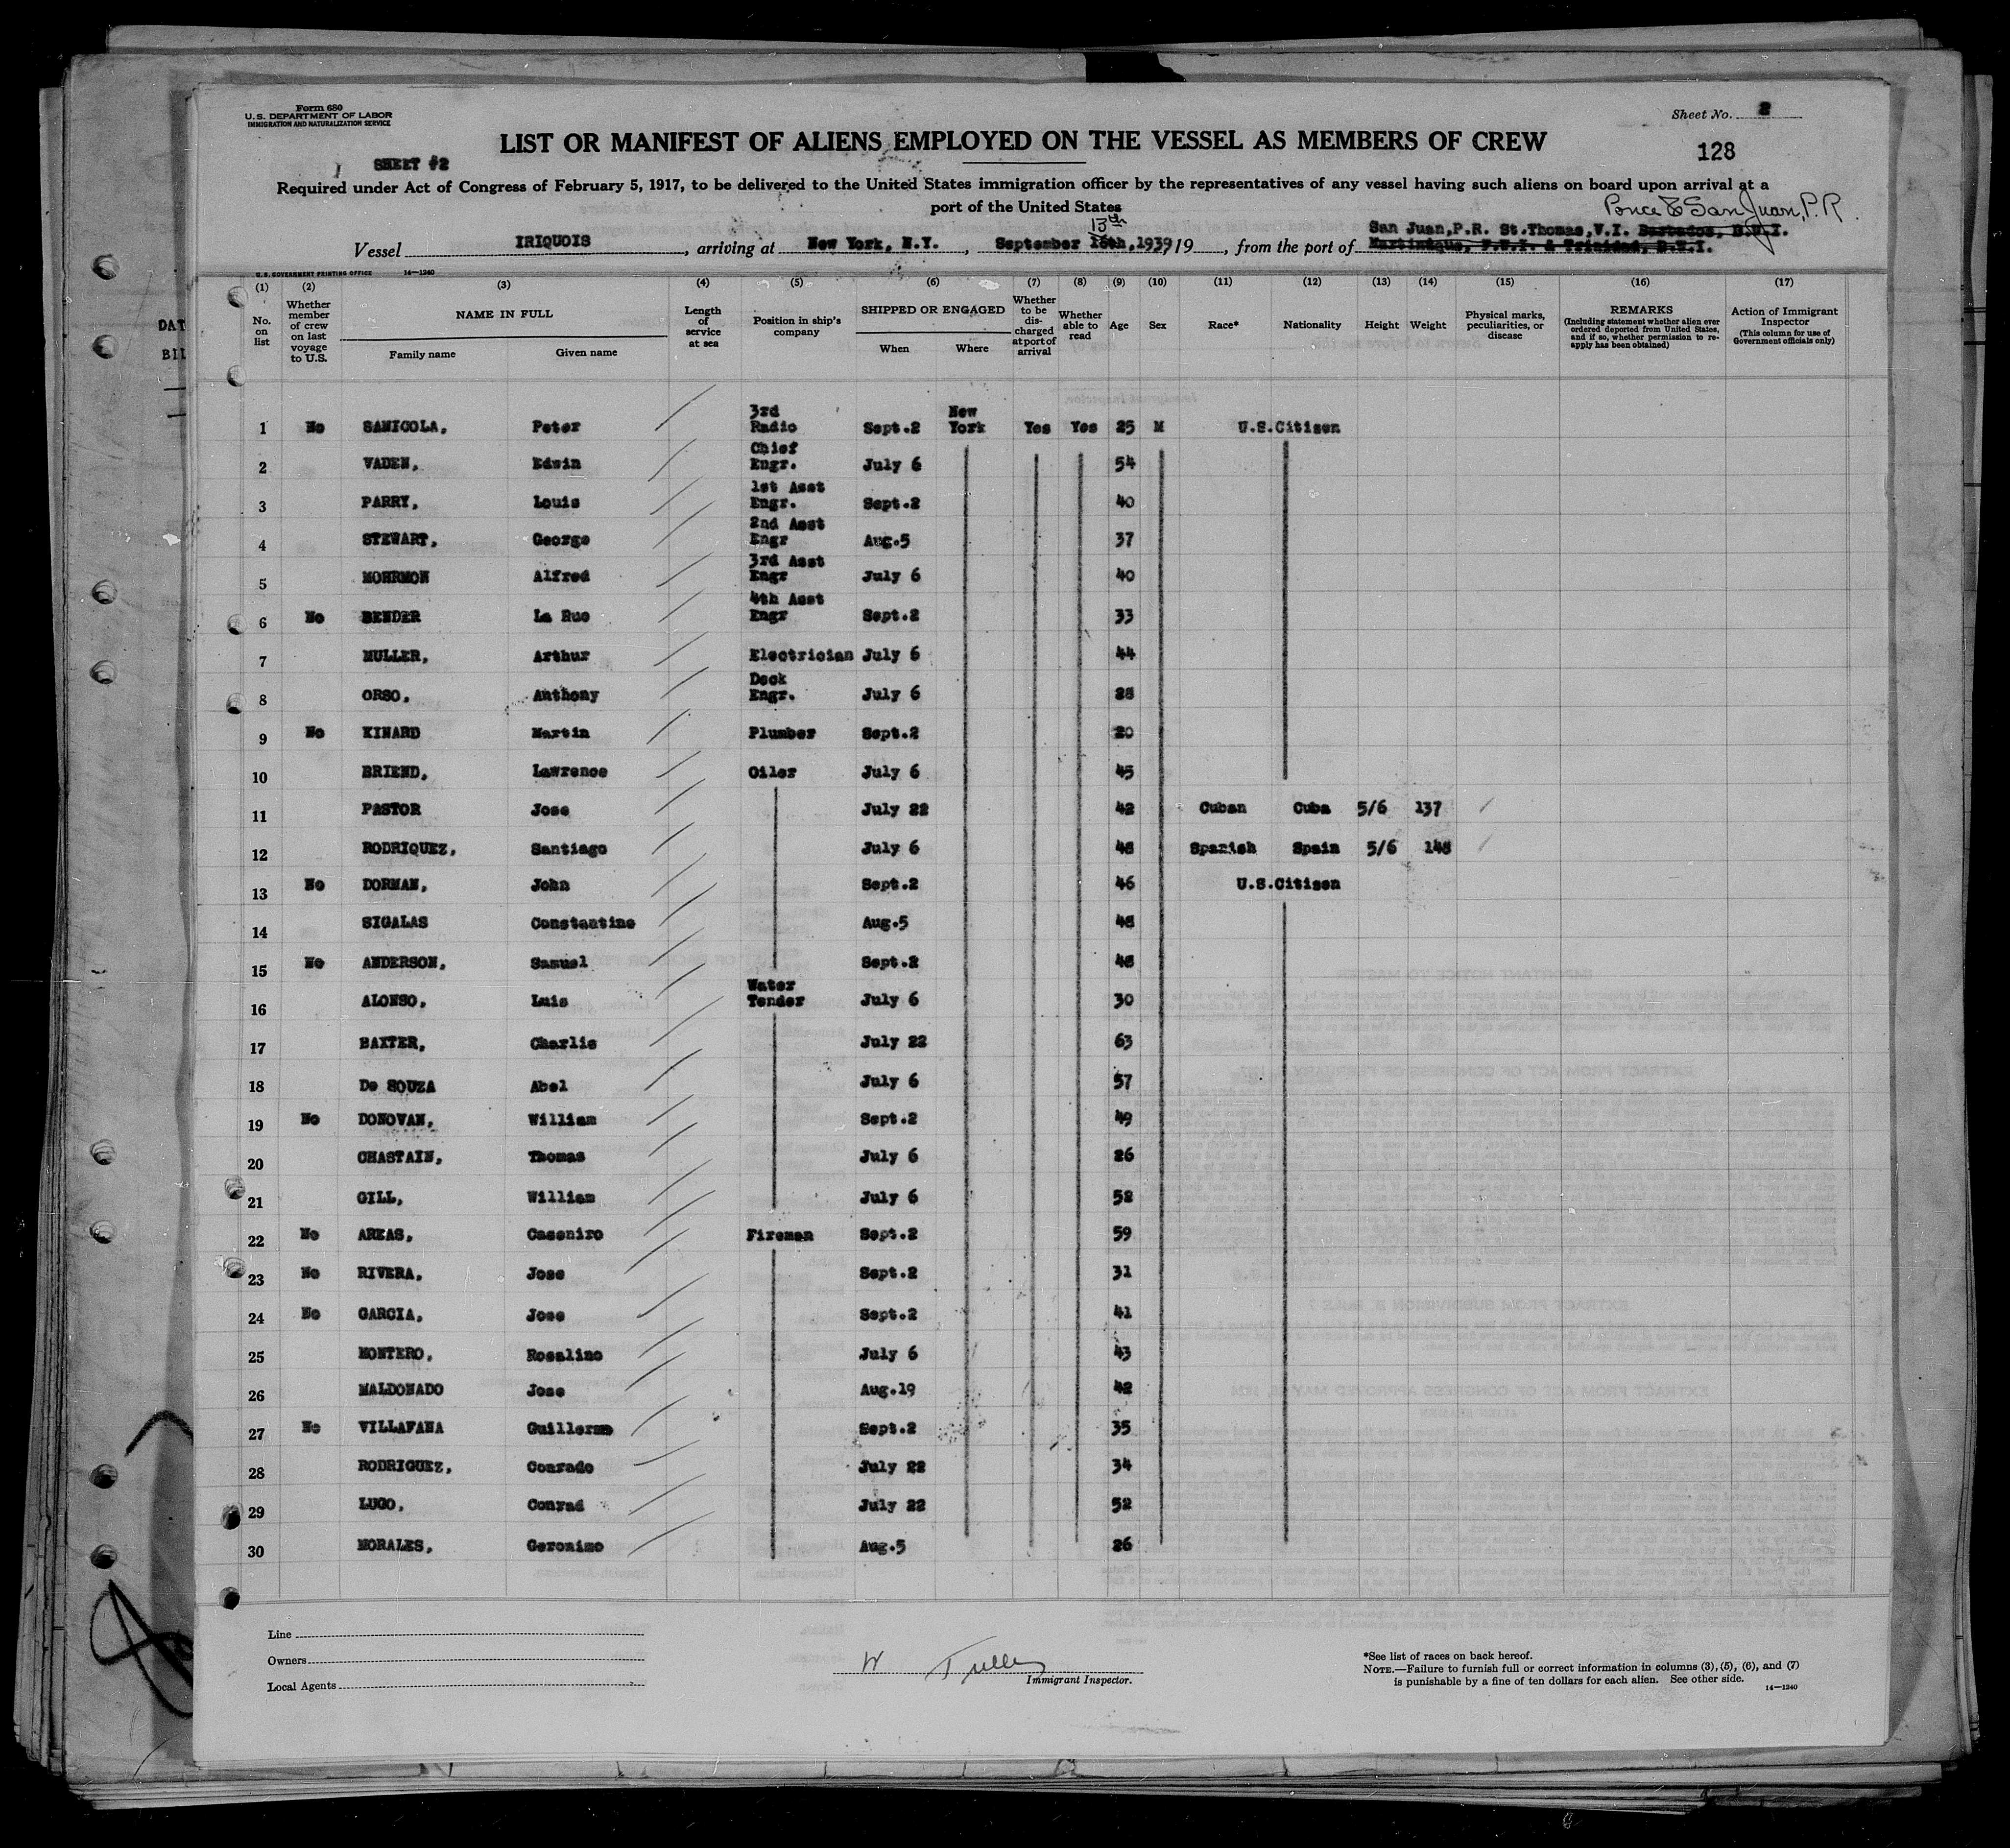 Form 680
U. S. DEPARTMENT OF LABOR
IMMIGRATION AND NATURALIZATION SERVICE
Sheet No. 2
LIST OR MANIFEST OF ALIENS EMPLOYED ON THE VESSEL AS MEMBERS OF CREW
128
SHEET #2
Required under Act of Congress of February 5, 1917, to be delivered to the United States immigration officer by the representatives of any vessel having such aliens on board upon arrival at a
port of the United States
Ponce & San Juan, P.R.
13th
San Juan,P.R. St.Thomas,V.I. Barbados, B.W.I.
Vessel IRIQUOIS, arriving at New York, N.Y., September 16th,1939, 19, from the port of Martinique, F.W.I. & Trinidad, B.W.I.
U. S. GOVERNMENT PRINTING OFFICE 14—1240
(1) (2) (3) (4) (5) (6) (7) (8) (9) (10) (11) (12) (13) (14) (15) (16) (17)
No. on list
Whether member of crew on last voyage to U.S.
NAME IN FULL
Family name Given name
Length of service at sea
Position in ship's company
SHIPPED OR ENGAGED
When Where
Whether to be discharged at port of arrival
Whether able to read
Age Sex Race* Nationality Height Weight
Physical marks, peculiarities, or disease
REMARKS
(Including statement whether alien ever ordered deported from United States, and if so, whether permission to reapply has been obtained)
Action of Immigrant Inspector
(This column for use of Government officials only)
1 No SANICOLA, Peter 3rd Radio Sept.2 New York Yes Yes 25 M U.S.Citizen
2 VADEN, Edwin Chief Engr. July 6 54
3 PARRY, Louis 1st Asst Engr. Sept.2 40
4 STEWART, George 2nd Asst Engr Aug.5 37
5 MOHRMON Alfred 3rd Asst Engr July 6 40
6 No BENDER La Rue 4th Asst Engr Sept.2 33
7 MULLER, Arthur Electrician July 6 44
8 ORSO, Anthony Deck Engr. July 6 28
9 No KINARD Martin Plumber Sept.2 20
10 BRIEND, Lawrence Oiler July 6 45
11 PASTOR Jose July 22 42 Cuban Cuba 5/6 137
12 RODRIQUEZ, Santiago July 6 48 Spanish Spain 5/6 148
13 No DORMAN, John Sept.2 46 U.S.Citizen
14 SIGALAS Constantine Aug.5 48
15 No ANDERSON, Samuel Sept.2 48
16 ALONSO, Luis Water Tender July 6 30
17 BAXTER, Charlie July 22 63
18 De SOUZA Abel July 6 57
19 No DONOVAN, William Sept.2 49
20 CHASTAIN, Thomas July 6 26
21 GILL, William July 6 52
22 No AREAS, Casoniro Fireman Sept.2 59
23 No RIVERA, Jose Sept.2 31
24 No GARCIA, Jose Sept.2 41
25 MONTERO, Rosalino July 6 43
26 MALDONADO Jose Aug.19 42
27 No VILLAFANA Guillermo Sept.2 35
28 RODRIGUEZ, Conrado July 22 34
29 LUGO, Conrad July 22 52
30 MORALES, Geronimo Aug.5 26
Line
Owners
Local Agents
Immigrant Inspector.
*See list of races on back hereof.
NOTE.—Failure to furnish full or correct information in columns (3), (5), (6), and (7)
is punishable by a fine of ten dollars for each alien. See other side.
14—1240
DAT
BIL